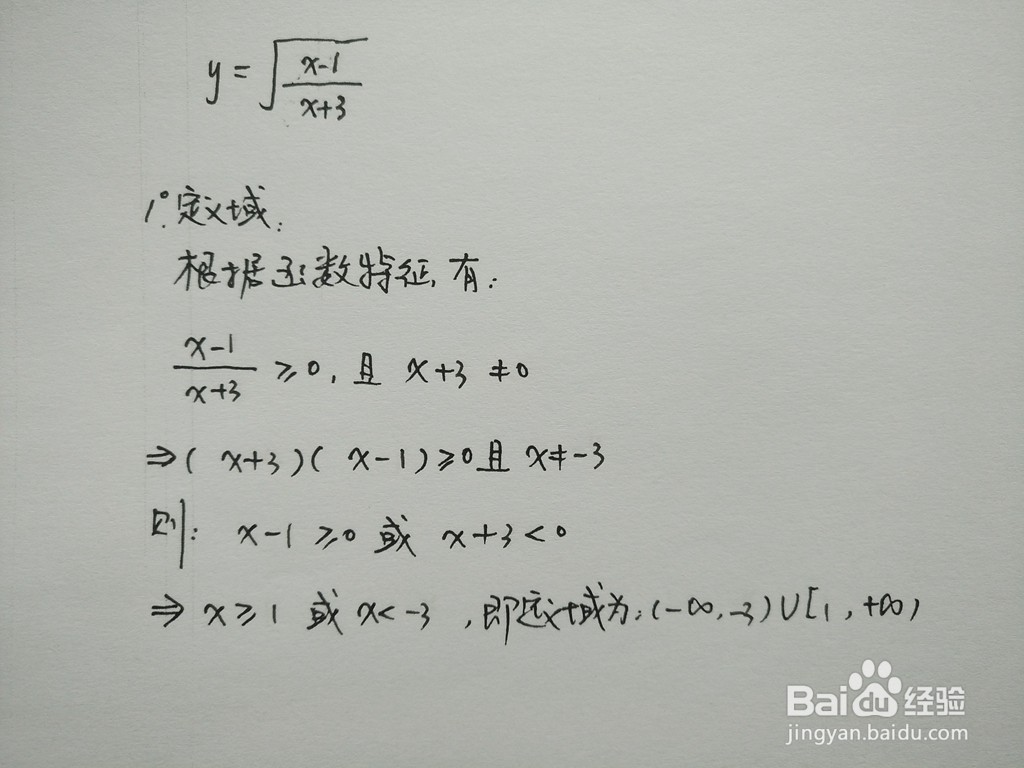 y = √((x-1)/(x+3))
1°.定义域:
根据函数特征,有:
(x-1)/(x+3) ≥0,且 x+3 ≠0
⇒(x+3)(x-1)≥0且 x≠-3
则: x-1≥0 或 x+3<0
⇒ x≥1 或 x<-3 ,即定义域为:(-∞,-3)∪[1,+∞)
Bai du 经验
jingyan.baidu.com